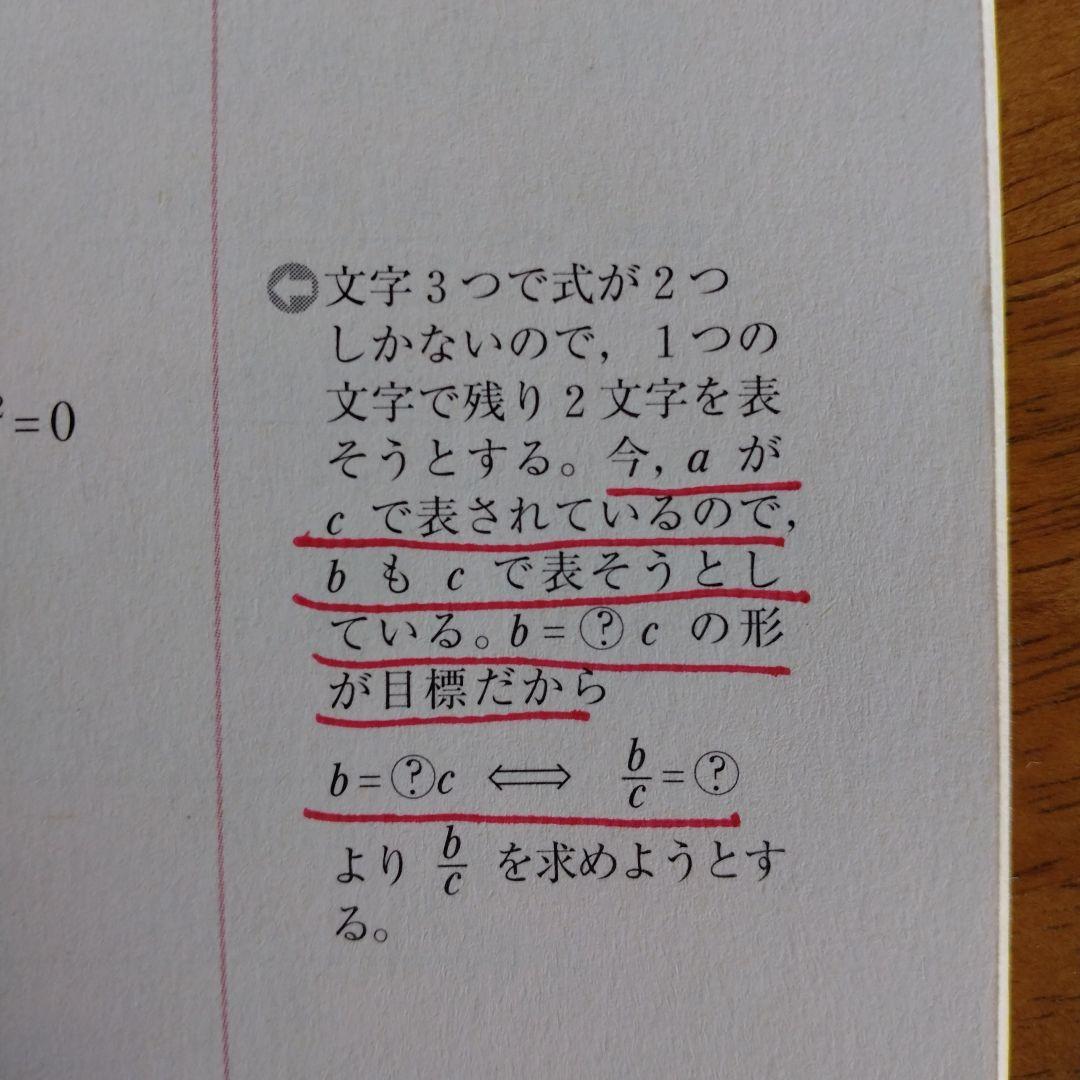 ²=0
文字3つで式が2つ
しかないので，1つの
文字で残り2文字を表
そうとする。今，a が
c で表されているので，
b も c で表そうとし
ている。b=?c の形
が目標だから
b=?c ⟺ b/c=?
より b/c を求めようとす
る。